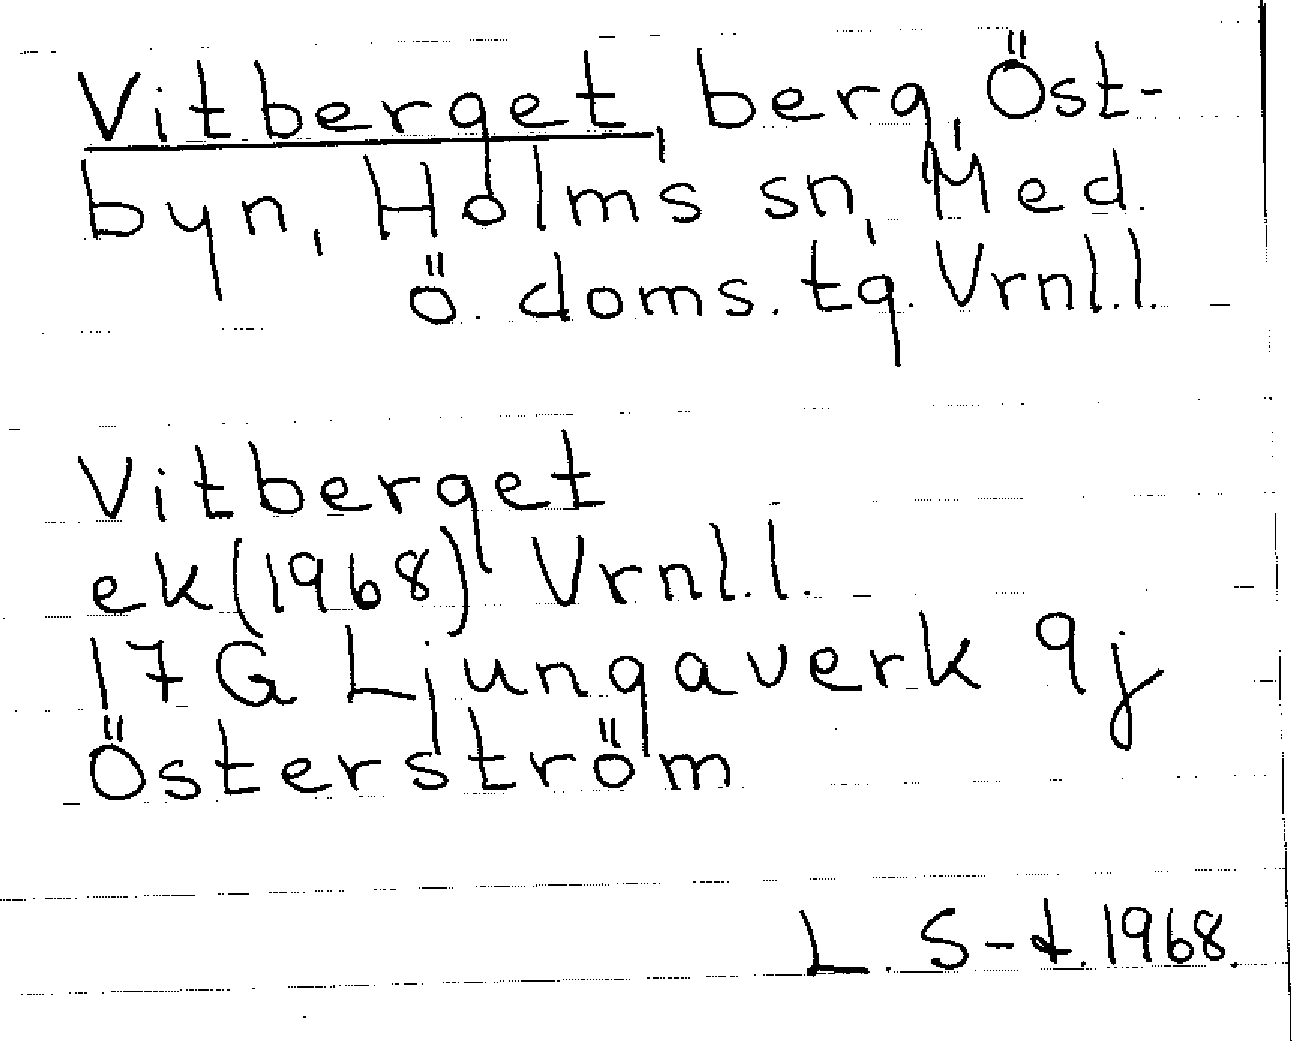 Vitberget, berg, Öst-
byn, Holms sn, Med.
ö. doms. tg. Vrnl.l.
Vitberget
ek (1968) Vrnl.l.
17 G Ljungaverk 9j
Österström
L. S-t. 1968.